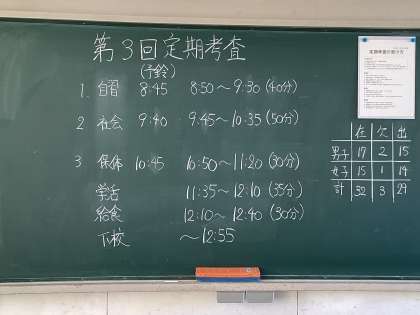 第3回定期考査
(予鈴)
1. 自習 8:45 8:50～9:30 (40分)
2 社会 9:40 9:45～10:35 (50分)
3. 保体 10:45 10:50～11:20 (30分)
学活 11:35～12:10 (35分)
給食 12:10～12:40 (30分)
下校 ～12:55
在 欠 出
男子 17 2 15
女子 15 1 14
計 32 3 29